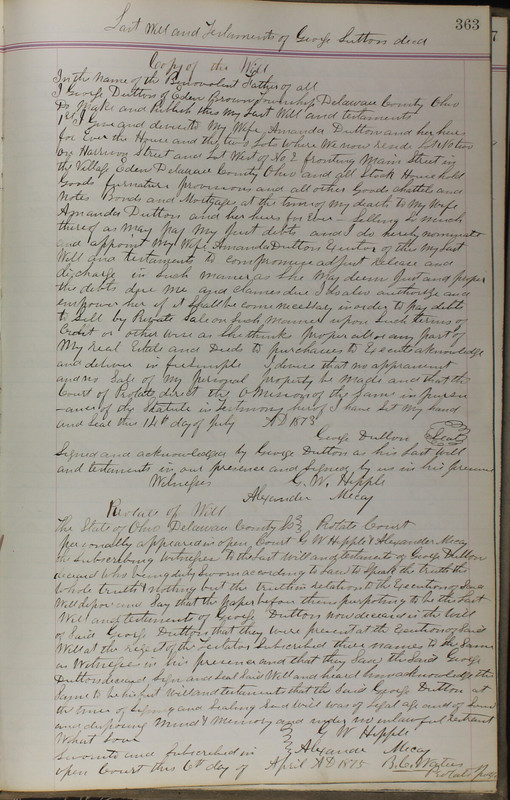 363
Last Will and Testaments of George Dutton decd
Copy of the Will
In the Name of the Benevolent Father of all
I George Dutton of Eden Brown Township Delaware County Ohio
Do Make and Publish this My Last Will and testaments
1st I Give and devise to My Wife Amanda Dutton and her heirs
for Ever the House and the two Lots Where We now reside Lot No
on Harrison Street and Lot West of No 2 fronting Main Street in
the Village Eden Delaware County Ohio and all Stock Household
Goods furnature provisions and all other Goods Chattel and
Notes Bonds and Mortgages at the time of My death to My Wife
Amanda Dutton and her heirs for Ever - Selling So much
thereof as May pay My Just debts and I do hereby nominate
and appoint My Wife Amanda Dutton Executor of this My Last
Will and testaments to compromise adjust release and
discharge in Such manner as She May deem Just and proper
the debts due me and claims due I do also authorize and
empower her if it Shall become necessary in order to pay debts
to Sell by Private Sale in Such Manner upon Such terms of
Credit or other wise as She thinks proper all or any part of
My Real Estate and Deeds to purchasers to Execute acknowledge
and deliver in feesimple I desire that no appraisment
and no Sale of My personal property be Made and that the
Court of Probate direct the Omission of the Same in pursu
-ance of the Statute in testimony hereof I have Set My hand
and Seal this 14th day of July AD 1873
George Dutton Seal
Signed and acknowledged by George Dutton as his Last Will
and testaments in our presence and Signed by us in his presence
Witnesses G. W. Hipple
Alexander Mccay
Probate of Will
The State of Ohio Delaware County SS Probate Court
personally appeared in open Court G W Hipple & Alexander Mccay
the Subscribing Witnesses to the last Will and testiments of George Dutton
deceased who being duly Sworn according to Law to Speak the truth the
whole truth & nothing but the truth in relation to the Execution of Said
Will depose and Say that the paper before them purpoting to be the Last
Will and testements of George Dutton now deceased is the Will
of Said George Dutton that they were present at the Execution of Said
Will at the request of the testator Subscribed their names to the Same
as Witnesses in his presence and that they Saw the Said George
Dutton deceased Sign and Seal Said Will and heard him acknowledge the
Same to be his last Will and testament that the Said George Dutton at
the time of Signing and Sealing Said Will was of Legal age and of Sound
and disposing Mind & Memory and under no unlawful restraint
What Ever G W Hipple
Sworn to and Subscribed in Alexander Mccay
open Court this 6th day of April AD 1875 B. C. Waters
Probate Judge